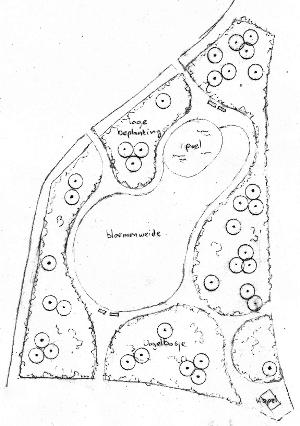 lage
beplanting
poel
bloemenweide
Vogelbosje
Kapel